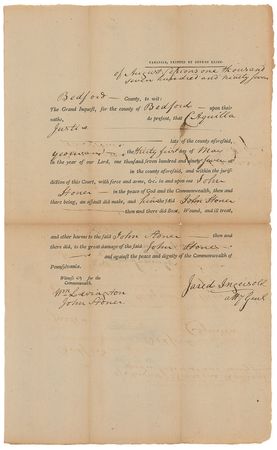 CARLISLE, PRINTED BY GEORGE KLINE.
of August Sessions one thousand
seven hundred and ninety seven
Bedford County, to wit:
The Grand Inquest, for the county of Bedford upon their
oaths, do present, that Aquilla
Justis
late of the county aforesaid,
yeoman on the thirty first of May
in the year of our Lord, one thousand seven hundred and ninety seven at
in the county aforesaid, and within the jurisdiction of this Court, with force and arms, &c. in and upon one John
Stoner in the peace of God and the Commonwealth, then and
there being, an assault did make, and him the said John Stoner
then and there did beat, wound, and ill treat,
and other harms to the said John Stoner then and
there did, to the great damage of the said John Stoner
and against the peace and dignity of the Commonwealth of
Pennsylvania.
Witnesses for the Commonwealth.
Jared Ingersoll
Atty Genl
Wm
John Stoner